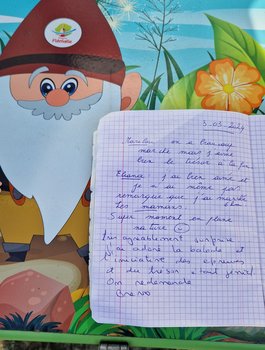 3-03-2024
on a beaucoup
marché mais j'aime
bien le trésor à la fin
Eliana j'ai bien aimé et
je n'ai même pas
remarqué que j'ai marché
Les mamans
Super moment en pleine
nature
Très agréablement surprise
J'ai adoré la balade et
l'initiative des épreuves
et du trésor était génial
On redemande
Bravo